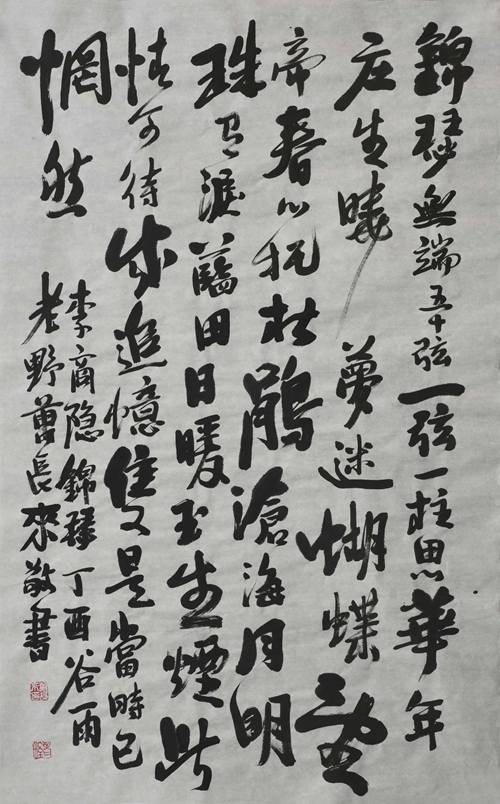 錦瑟無端五十弦一弦一柱思華年
庄生曉夢迷蝴蝶望
帝春心托杜鵑滄海月明
珠有淚藍田日暖玉生煙此
情可待成追憶隻是當時已
惘然
李商隐錦瑟丁酉谷雨
老野曹長來敬書